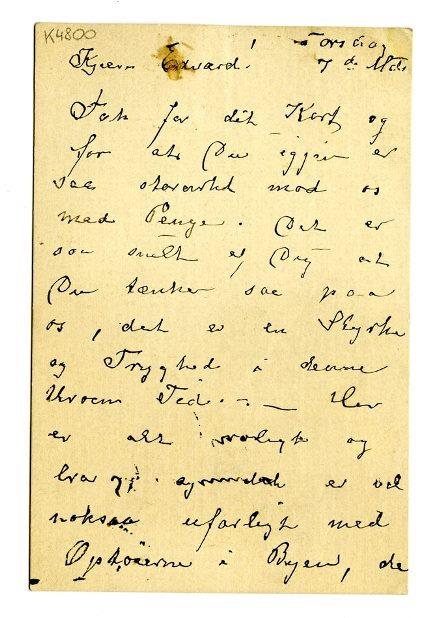 K4800
Torsdag
Kjære Edvard! 7de Mts
Tak for dit Kort og
for at Du igjen er
saa storartet mod os
med Penge. Det er
saa snilt af Dig at
Du tænker saa paa
os, det er en Styrke
og Tryghed i denne
Tid. — Her
er alt roligt og
bra er vel
noksaa ufarligt med
Optøierne i Byen, de